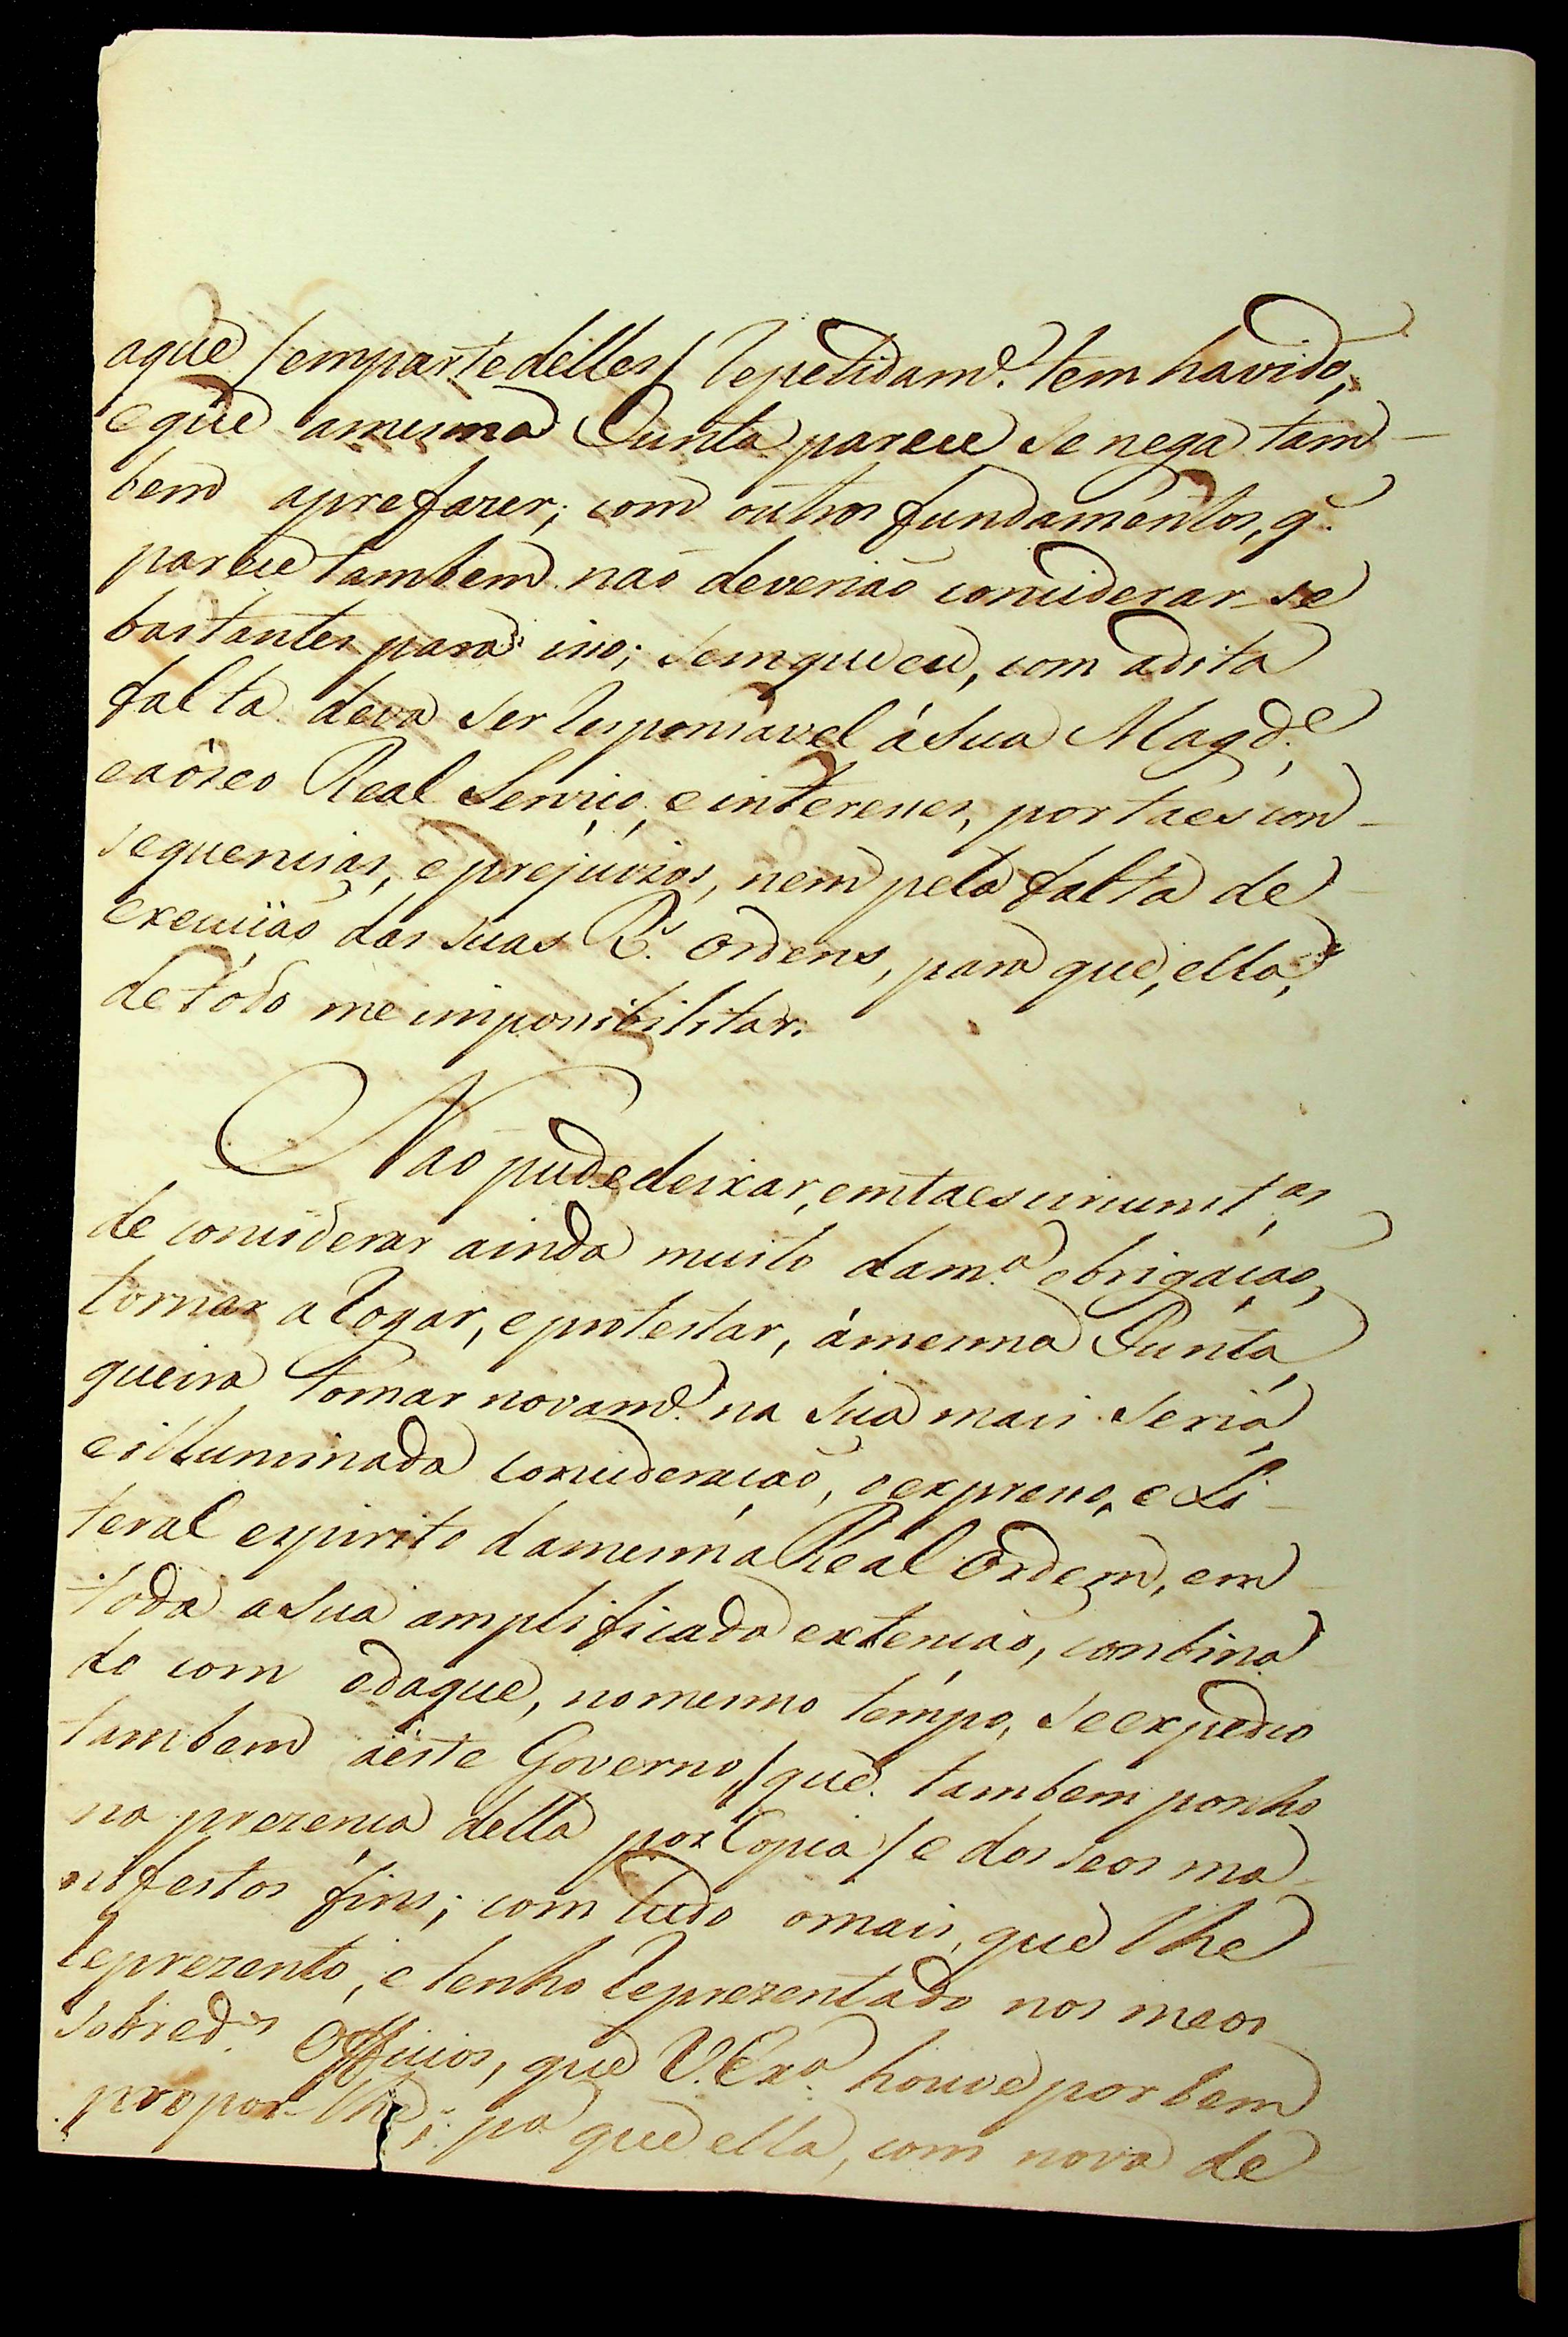 aque /emparte delles/ repetidam.e tem havido,
e que amesma Junta parece se nega tam-
bem aprefazer; com outros fundamentos, q.
parece tambem não deverião considerar-se
bastantes para isso; sem que eu, com adita
falta deva ser responsavel á Sua Magd.e,
e aõ seo Real Serviço, e interesses, por taes con-
sequencias, e prejuizos, nem pela falta de
execução das suas R.s Ordens, para que, ella,
de todo me impossibilitar.
Não pude deixar, em taes circunst.as
de considerar ainda muito dam.a obrigação,
tornar a rogar, e protestar, ámesma Junta,
queira tomar novam.e na sua mais seria,
e illuminada consideração, o expresso, e Li-
teral espirito damesma Real Ordem, em
toda a sua amplificada extenção, combina-
do com odaque, nomesmo tempo, se expedio
tambem aeste Governo, /que tambem ponho
na prezença della por Copia/ e dos seos ma-
nifestos fins; com tudo omais, que lhe
reprezento, e tenho reprezentado nos meos
sobred.os Officios, que V. Ex.a houve por bem
propor-lhe; p.a que ella, com nova de-